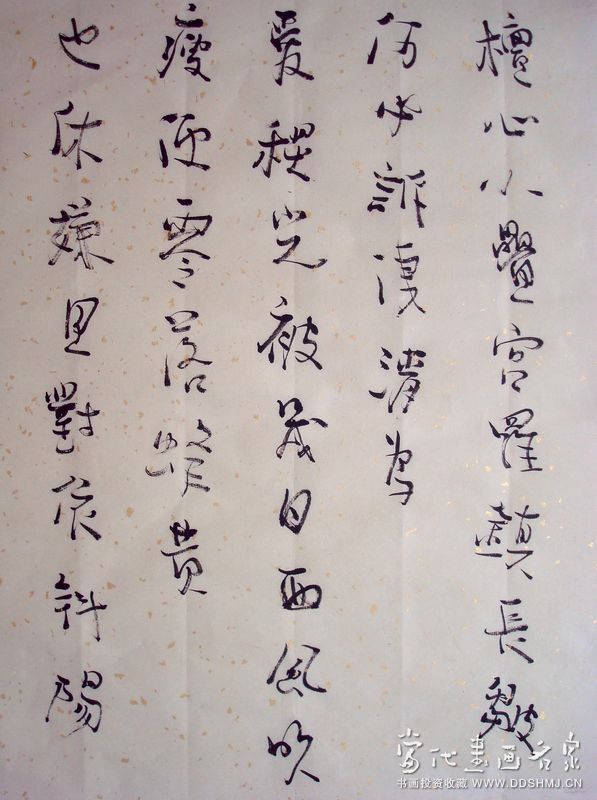 檀心小疊宮羅鎮長皺
何必訴淒清為
愛秋光被幾日西風吹
瘦便零落蜂黃
也休嫌且對依斜陽
當代書畫名家
书画投资收藏 WWW.DDSHMJ.CN